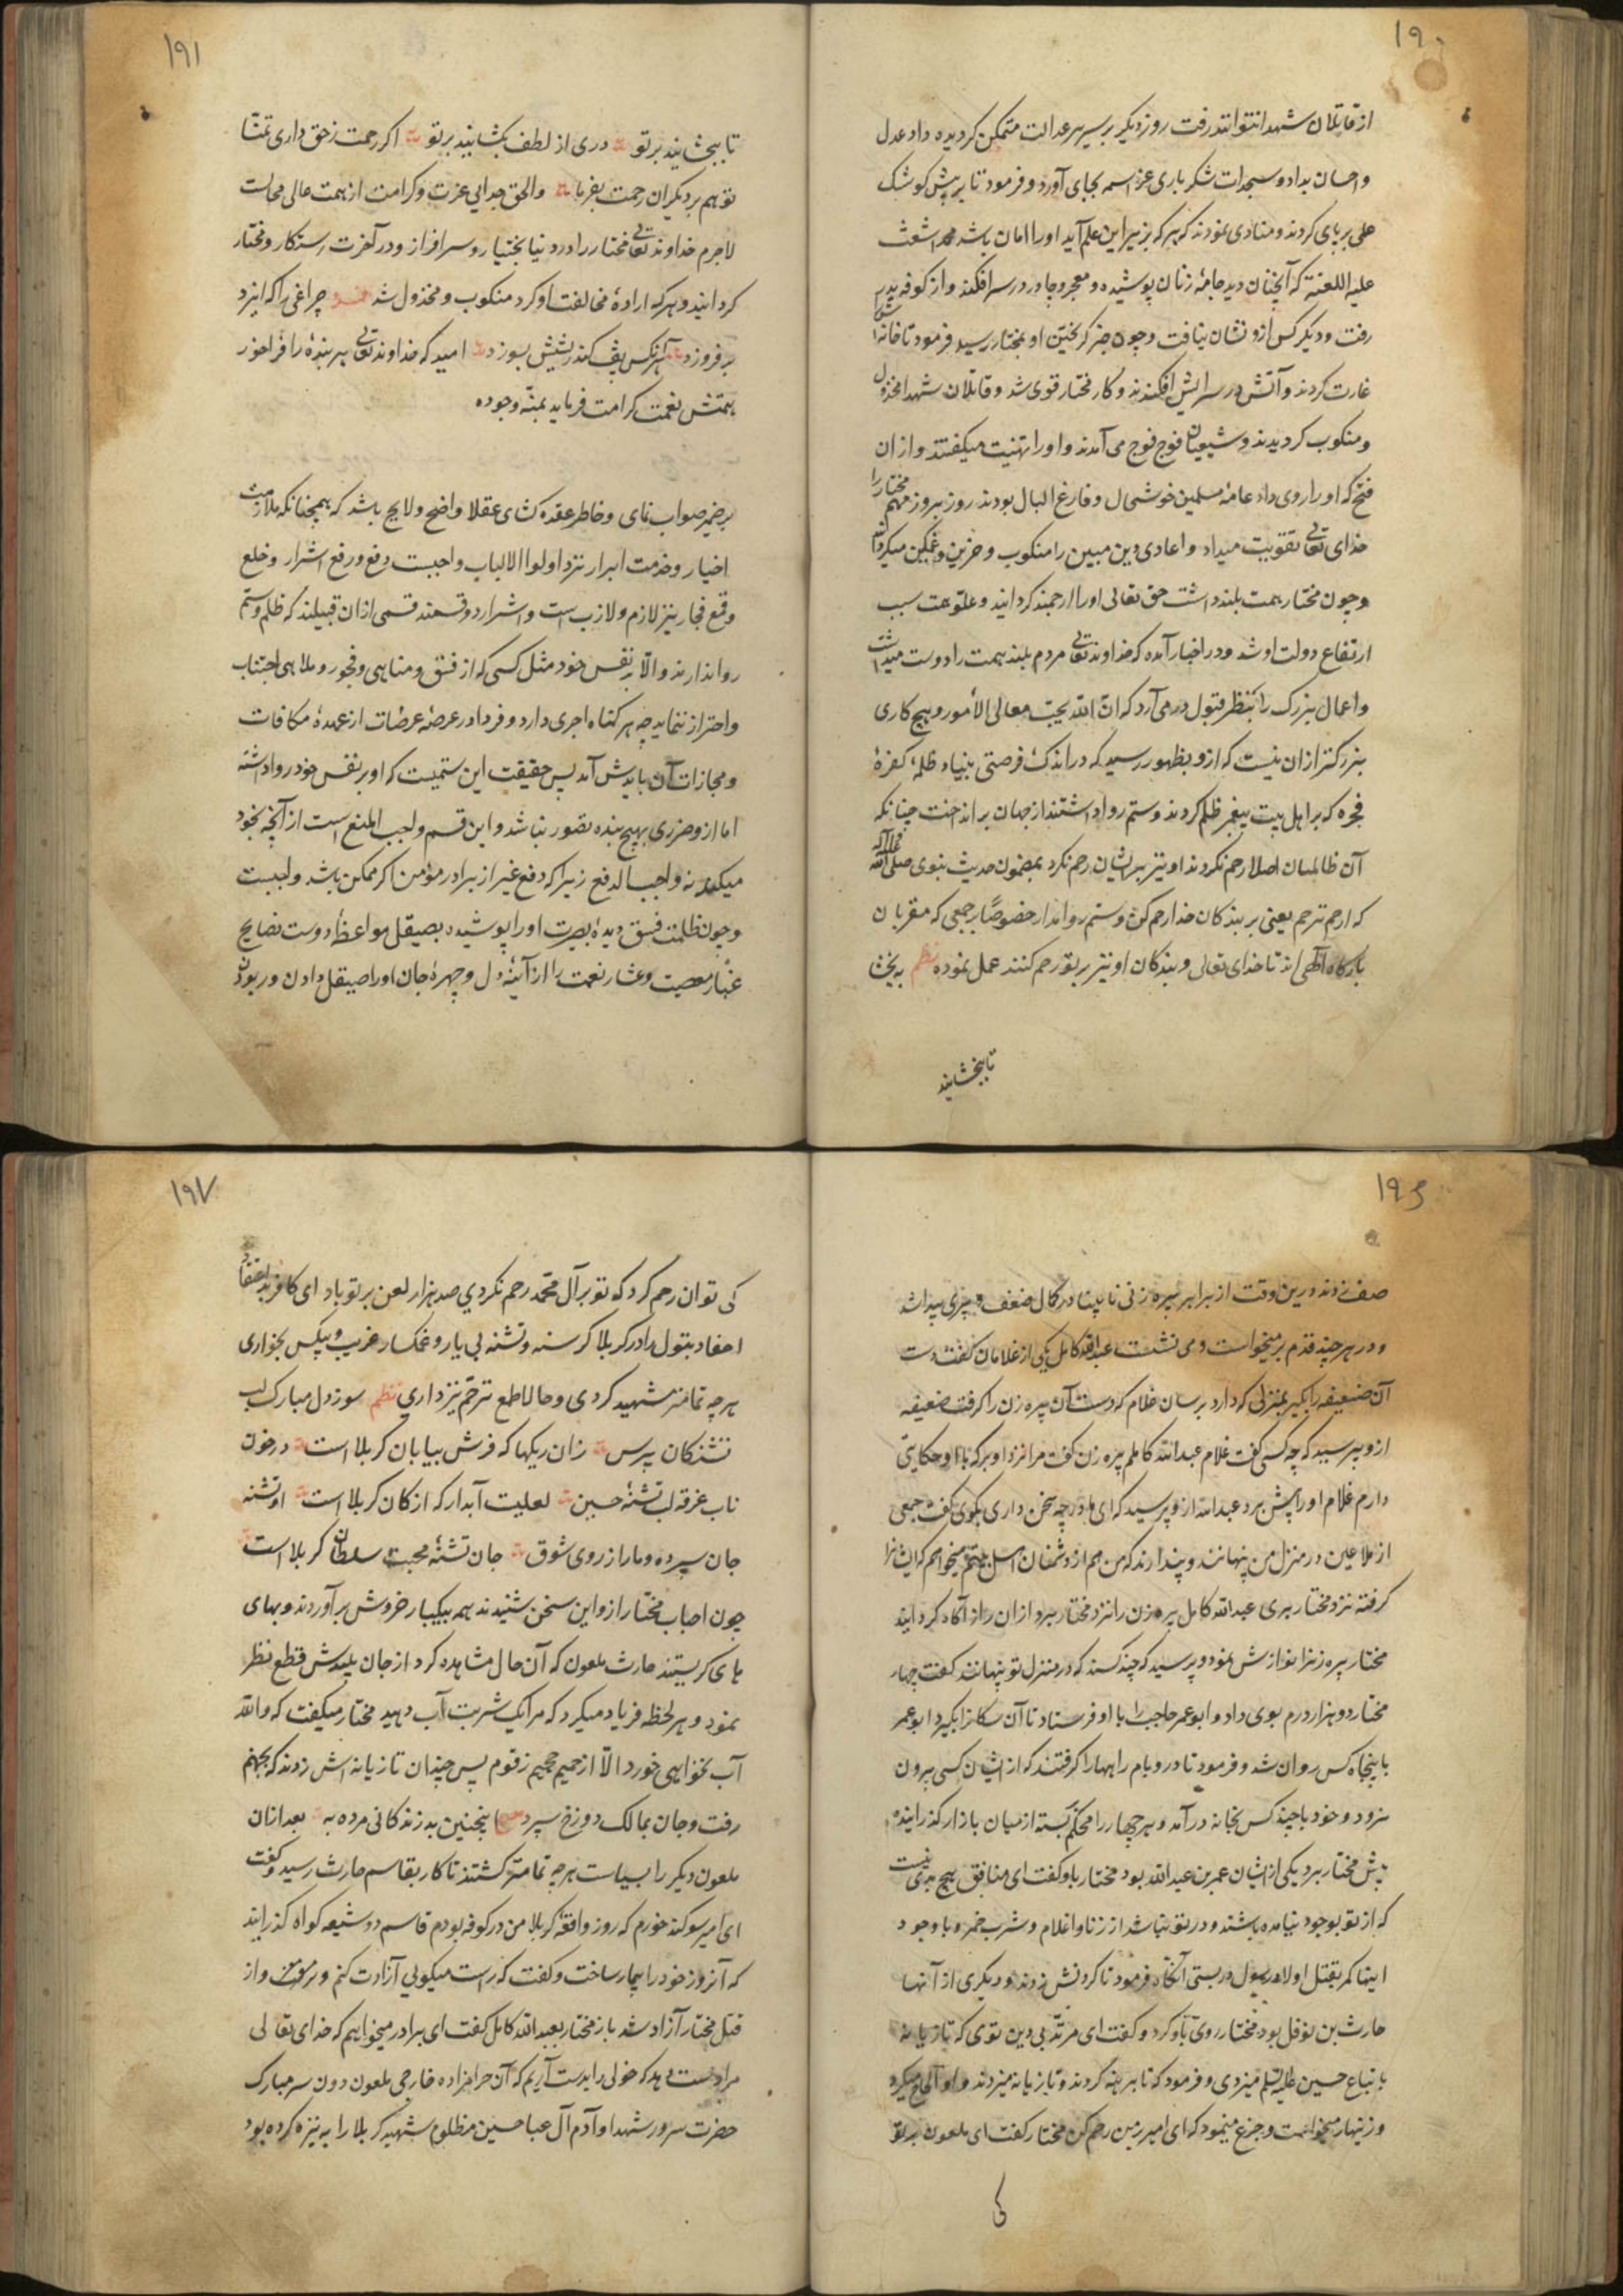 ۱۹۰
از قاتلان شهدا نتوانند رفت روز دیگر بر سریر عدالت متمکن گردیده داد عدل
و احسان بداد و سجدات شکر باری عز اسمه بجای آورد و فرمود تا بر پیش کوشک
علمی بر پای کردند و منادی نمودند که هر که بزیر این علم آید او را امان باشد محمد اشعث
علیه اللعنة که آنچنان دید جامهٔ زنان پوشیده و معجر و چادر در سر افکند و از کوفه بدر
رفت و دیگر کس ازو نشان نیافت و چون خبر گریختن او بمختار رسید فرمود تا خانه اش
غارت کردند و آتش در سرایش افکندند و کار مختار قوی شد و قاتلان شهدا مخذول
و منکوب گردیدند و شیعیان فوج فوج می آمدند و او را تهنیت میگفتند و از ان
فتح که او را روی داد عامهٔ مسلمین خوشحال و فارغ البال بودند روز بروز مهم مختار را
خدای تعالی تقویت میداد و اعادی دین مبین را منکوب و حزین و غمگین میگردانید
و چون مختار همت بلند داشت حق تعالی او را ارجمند گردانید و علو همت سبب
ارتفاع دولت او شد و در اخبار آمده که خداوند تعالی مردم بلند همت را دوست میداشت
و اعمال بزرک را بنظر قبول در می آرد که ان الله یحب معالی الامور و هیچ کاری
بزرکتر از ان نیست که ازو بظهور رسید که در اندک فرصتی بنیاد ظلمهٔ کفرهٔ
فجره که بر اهل بیت پیغمبر ظلم کردند و ستم روا داشتند از جهان برانداخت چنانکه
آن ظالمان اصلا رحم نکردند او نیز بر ایشان رحم نکرد بمضمون حدیث نبوی صلی الله علیه و آله
که ارحم ترحم یعنی بر بندکان خدا رحم کن و ستم روا مدار خصوصًا بر جمعی که مقربان
بارکاه الهی اند تا خدای تعالی و بندکان او نیز بر تو رحم کنند عمل نموده نظم به بخشا
تا ببخشایند
۱۹۱
تا ببخشایند بر تو دری از لطف بکشایند بر تو اکر رحمت ز حق داری تمنا
تو هم بر دیکران رحمت بفرما والحق جدایی عزت و کرامت از همت عالی محالست
لاجرم خداوند تعالی مختار را در دنیا بختیار و سرافراز و در آخرت رستکار و مختار
کردانید و هر که ارادهٔ مخالفت او کرد منکوب و مخذول شد چراغی را که ایزد
بر فروزد هر آنکس پف کند ریشش بسوزد امید که خداوند تعالی هر بندهٔ را فراخور
همتش نعمت کرامت فرماید بمنّه وجوده
بر ضمیر صواب نمای و خاطر عقده کشای عقلا واضح و لایح باشد که همچنانکه ملازمت
اخیار و خدمت ابرار نزد اولوا الالباب واجبست دفع و رفع اشرار و خلع
و قمع فجار نیز لازم و لازب است و اشرار دو قسمند قسمی از ان قبیلند که ظلم و ستم
روا ندارند والّا بر نفس خود مثل کسی که از فسق و مناهی و فجور و ملاهی اجتناب
و احتراز ننماید چه هر کناه اجری دارد و فردا در عرصهٔ عرصات از عهدهٔ مکافات
و مجازات آن بایدش آمد پس حقیقت این ستمیست که او بر نفس خود روا داشته
اما ازو ضرری بهیچ بنده تصور نباشد و این قسم واجب المنع است از آنچه بخود
میکند نه واجب الدفع زیرا که دفع غیر از برادر مؤمن اکر ممکن باشد واجبست
و چون ظلمت فسق دیدهٔ بصیرت او را پوشیده بصیقل مواعظ و دست نصایح
غبار معصیت و غشاء نعمت را از آینهٔ دل و چهرهٔ جان او را صیقل دادن و ربودن
۱۹۶
صف زدند درین وقت از برابر پیره زنی نابینا در کمال ضعف و پیری پیدا شد
و در هر چند قدم بر میخواست و می نشست عبدالله کامل یکی از غلامان کفت دست
آن ضعیفه را بکیر بمنزلی که دارد برسان غلام که دست آن پیره زن را کرفت ضعیفه
ازو پرسید که چه کسی کفت غلام عبدالله کاملم پیره زن کفت مرا نزد او بر که با او حکایتی
دارم غلام او را پیش برد عبدالله ازو پرسید که ای مادر چه سخن داری بکوی کفت جمعی
از ملاعین در منزل من پنهانند و پندارند که من هم از دشمنان میخواهم که ایشانرا
کرفته نزد مختار بری عبدالله کامل پیره زن را نزد مختار برد از ان راز آکاه کردانید
مختار پیره زنرا نوازش نمود و پرسید که چند کسند که در منزل تو پنهانند کفت چهار
مختار دو هزار درم بوی داد و ابو عمر حاجب را با او فرستاد تا آن سکانرا بکیرد ابو عمر
با پنجاه کس روان شد و فرمود تا در و بام راهها را کرفتند که از ایشان کسی بیرون
نرود و خود با چند کس بخانه در آمد و هر چهار را محکم بسته از میان بازار کذرانیده
پیش مختار برد یکی از ایشان عمر بن عبد الله بود مختار باو کفت ای منافق هیچ بدی نیست
که از تو بوجود نیامده باشد و در تو نباشد از زنا و اغلام و شرب خمر و با وجود
اینها کمر بقتل اولاد رسول در بستی آنکاه فرمود تا کردنش زدند و دیکری از آنها
حارث بن نوفل بود مختار روی باو کرد و کفت ای مرتد بی دین توی که تازیانه
باتباع حسین علیه السلم میزدی و فرمود که تا برهنه کردند و تازیانه میزدند و او الحاح میکرد
و زنهار میخواست و جزع مینمود که ای امیر بر من رحم کن مختار کفت ای ملعون بر تو
کی
۱۹۷
کی توان رحم کرد که تو بر آل محمد رحم نکردی صد هزار لعن بر تو باد ای کافر بد اعتقاد
احفاد بتول را در کربلا کرسنه و تشنه بی یار و غمکسار غریب و بیکس بخواری
هر چه تمامتر شهید کردی و حالا طمع ترحم نیز داری نظم سوز دل مبارک لب
تشنکان بپرس زان ریکها که فرش بیابان کربلا است در خون
ناب غرقه لب تشنهٔ حسین لعلیست آبدار که از کان کربلا است او تشنه
جان سپرده و ما را ز روی شوق جان تشنهٔ محبت سلطان کربلا است
چون احباب مختار ازو این سخن شنیدند همه بیکبار خروش بر آوردند و بهای
های کریستند حارث ملعون که آن حال مشاهده کرد از جان پلیدش قطع نظر
نمود و هر لحظه فریاد میکرد که مرا یک شربت آب دهید مختار میکفت که والله
آب نخواهی خورد الّا از حمیم جحیم زقوم پس چندان تازیانه اش زدند که بجهنم
رفت و جان بمالک دوزخ سپرد اینچنین بد زندکانی مرده به بعد از ان
ملعون دیکر را بسیاست هر چه تمامتر کشتند تا کار بقاسم حارث رسید و کفت
ای امیر سوکند خورم که روز واقعهٔ کربلا من در کوفه بودم قاسم دو شیعه کواه کذرانید
که آنروز خود را بیمار ساخت و کفت که راست میکویی آزادت کنم و از
قتل مختار آزاد شد باز مختار بعبدالله کامل کفت ای برادر میخواهم که خدای تعالی
مرا دست دهد که خولی را بدست آریم که آن حرامزاده خارجی ملعون دون سر مبارک
حضرت سرور شهدا و آدم آل عبا حسین مظلوم شهید کربلا را به نیزه کرده بود